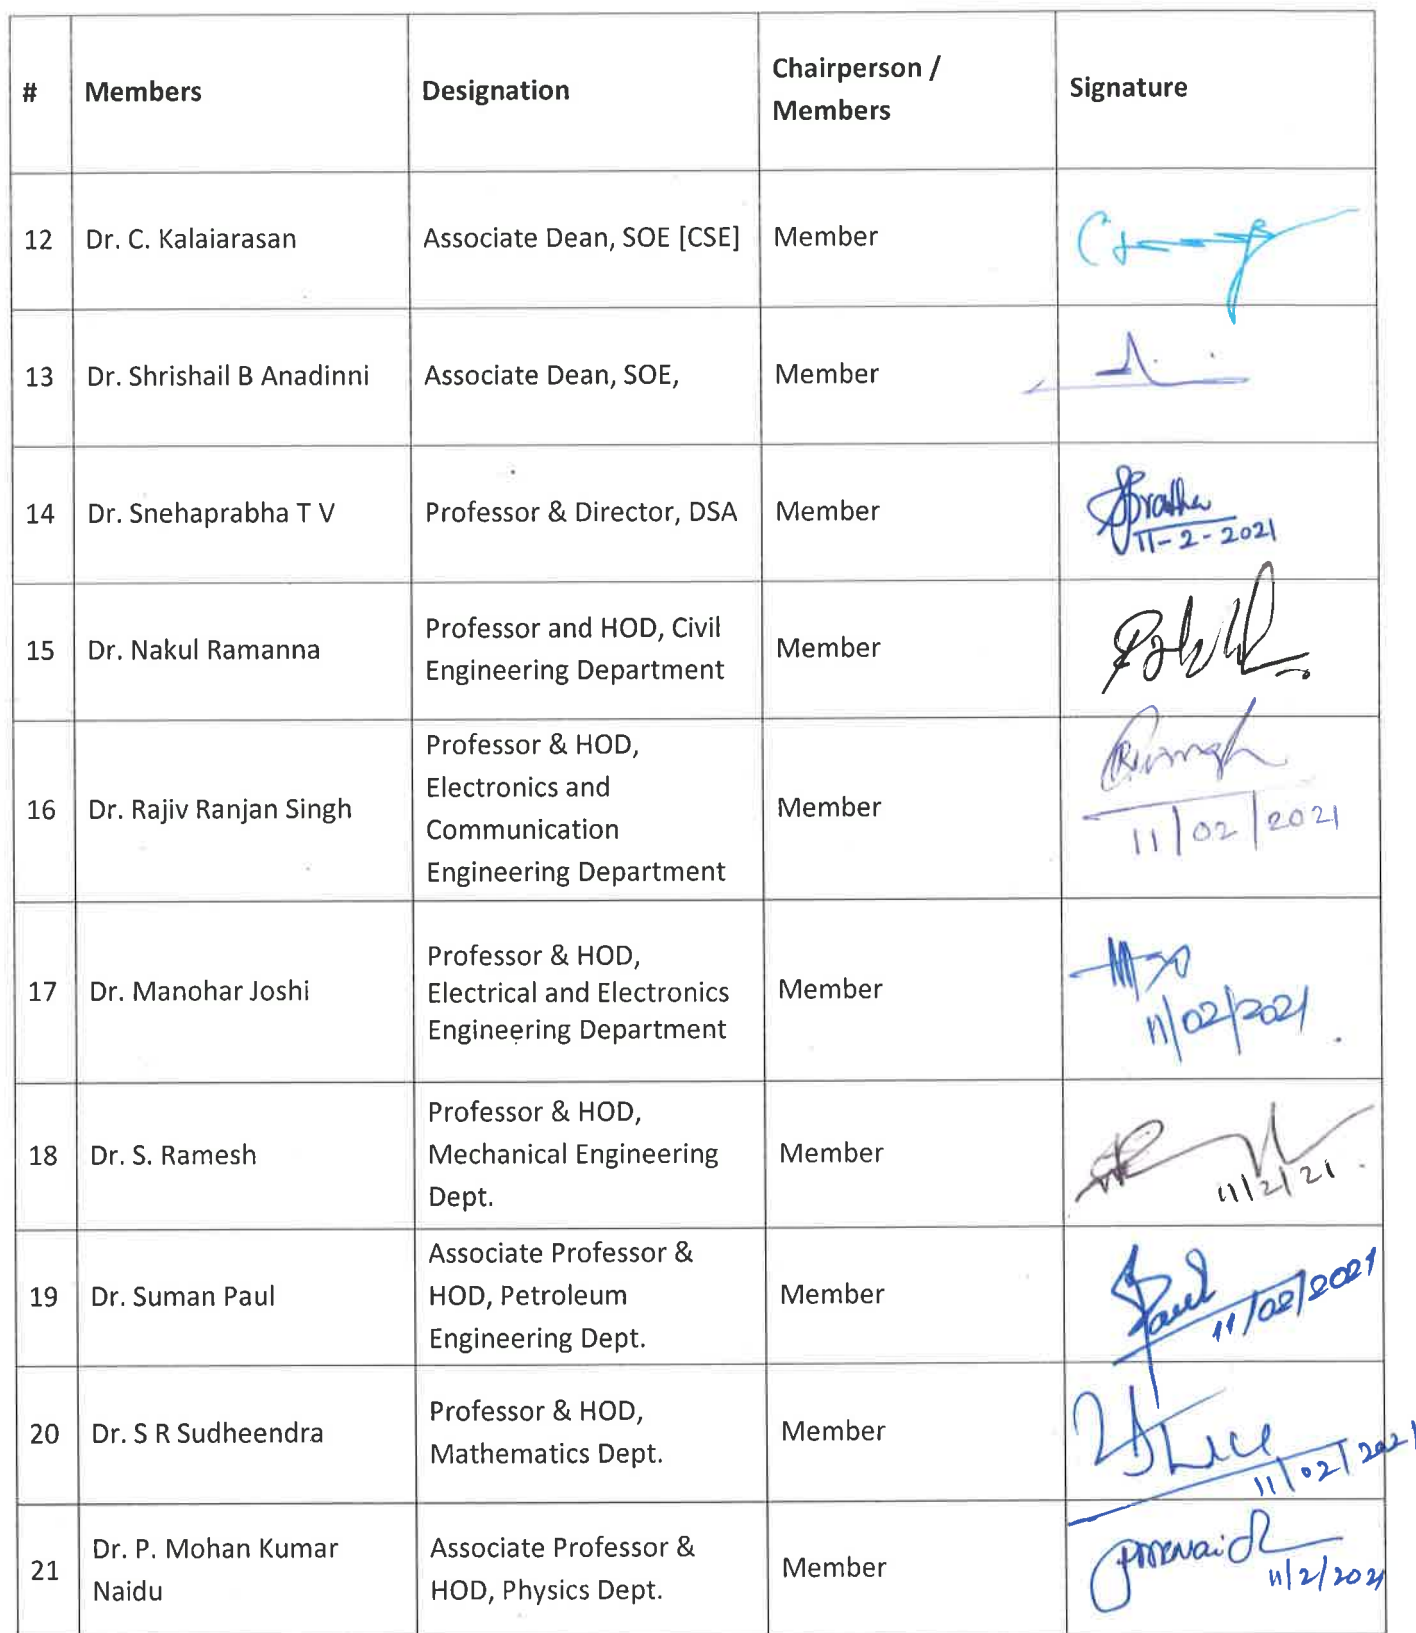 # Members Designation Chairperson / Members Signature
12 Dr. C. Kalaiarasan Associate Dean, SOE [CSE] Member
13 Dr. Shrishail B Anadinni Associate Dean, SOE, Member
14 Dr. Snehaprabha T V Professor & Director, DSA Member
11-2-2021
15 Dr. Nakul Ramanna Professor and HOD, Civil
Engineering Department Member
16 Dr. Rajiv Ranjan Singh Professor & HOD,
Electronics and
Communication
Engineering Department Member
11/02/2021
17 Dr. Manohar Joshi Professor & HOD,
Electrical and Electronics
Engineering Department Member
11/02/2021
18 Dr. S. Ramesh Professor & HOD,
Mechanical Engineering
Dept. Member
11/2/21
19 Dr. Suman Paul Associate Professor &
HOD, Petroleum
Engineering Dept. Member
Paul
11/02/2021
20 Dr. S R Sudheendra Professor & HOD,
Mathematics Dept. Member
11/02/2021
21 Dr. P. Mohan Kumar
Naidu Associate Professor &
HOD, Physics Dept. Member
PMKNaid
11/2/2021